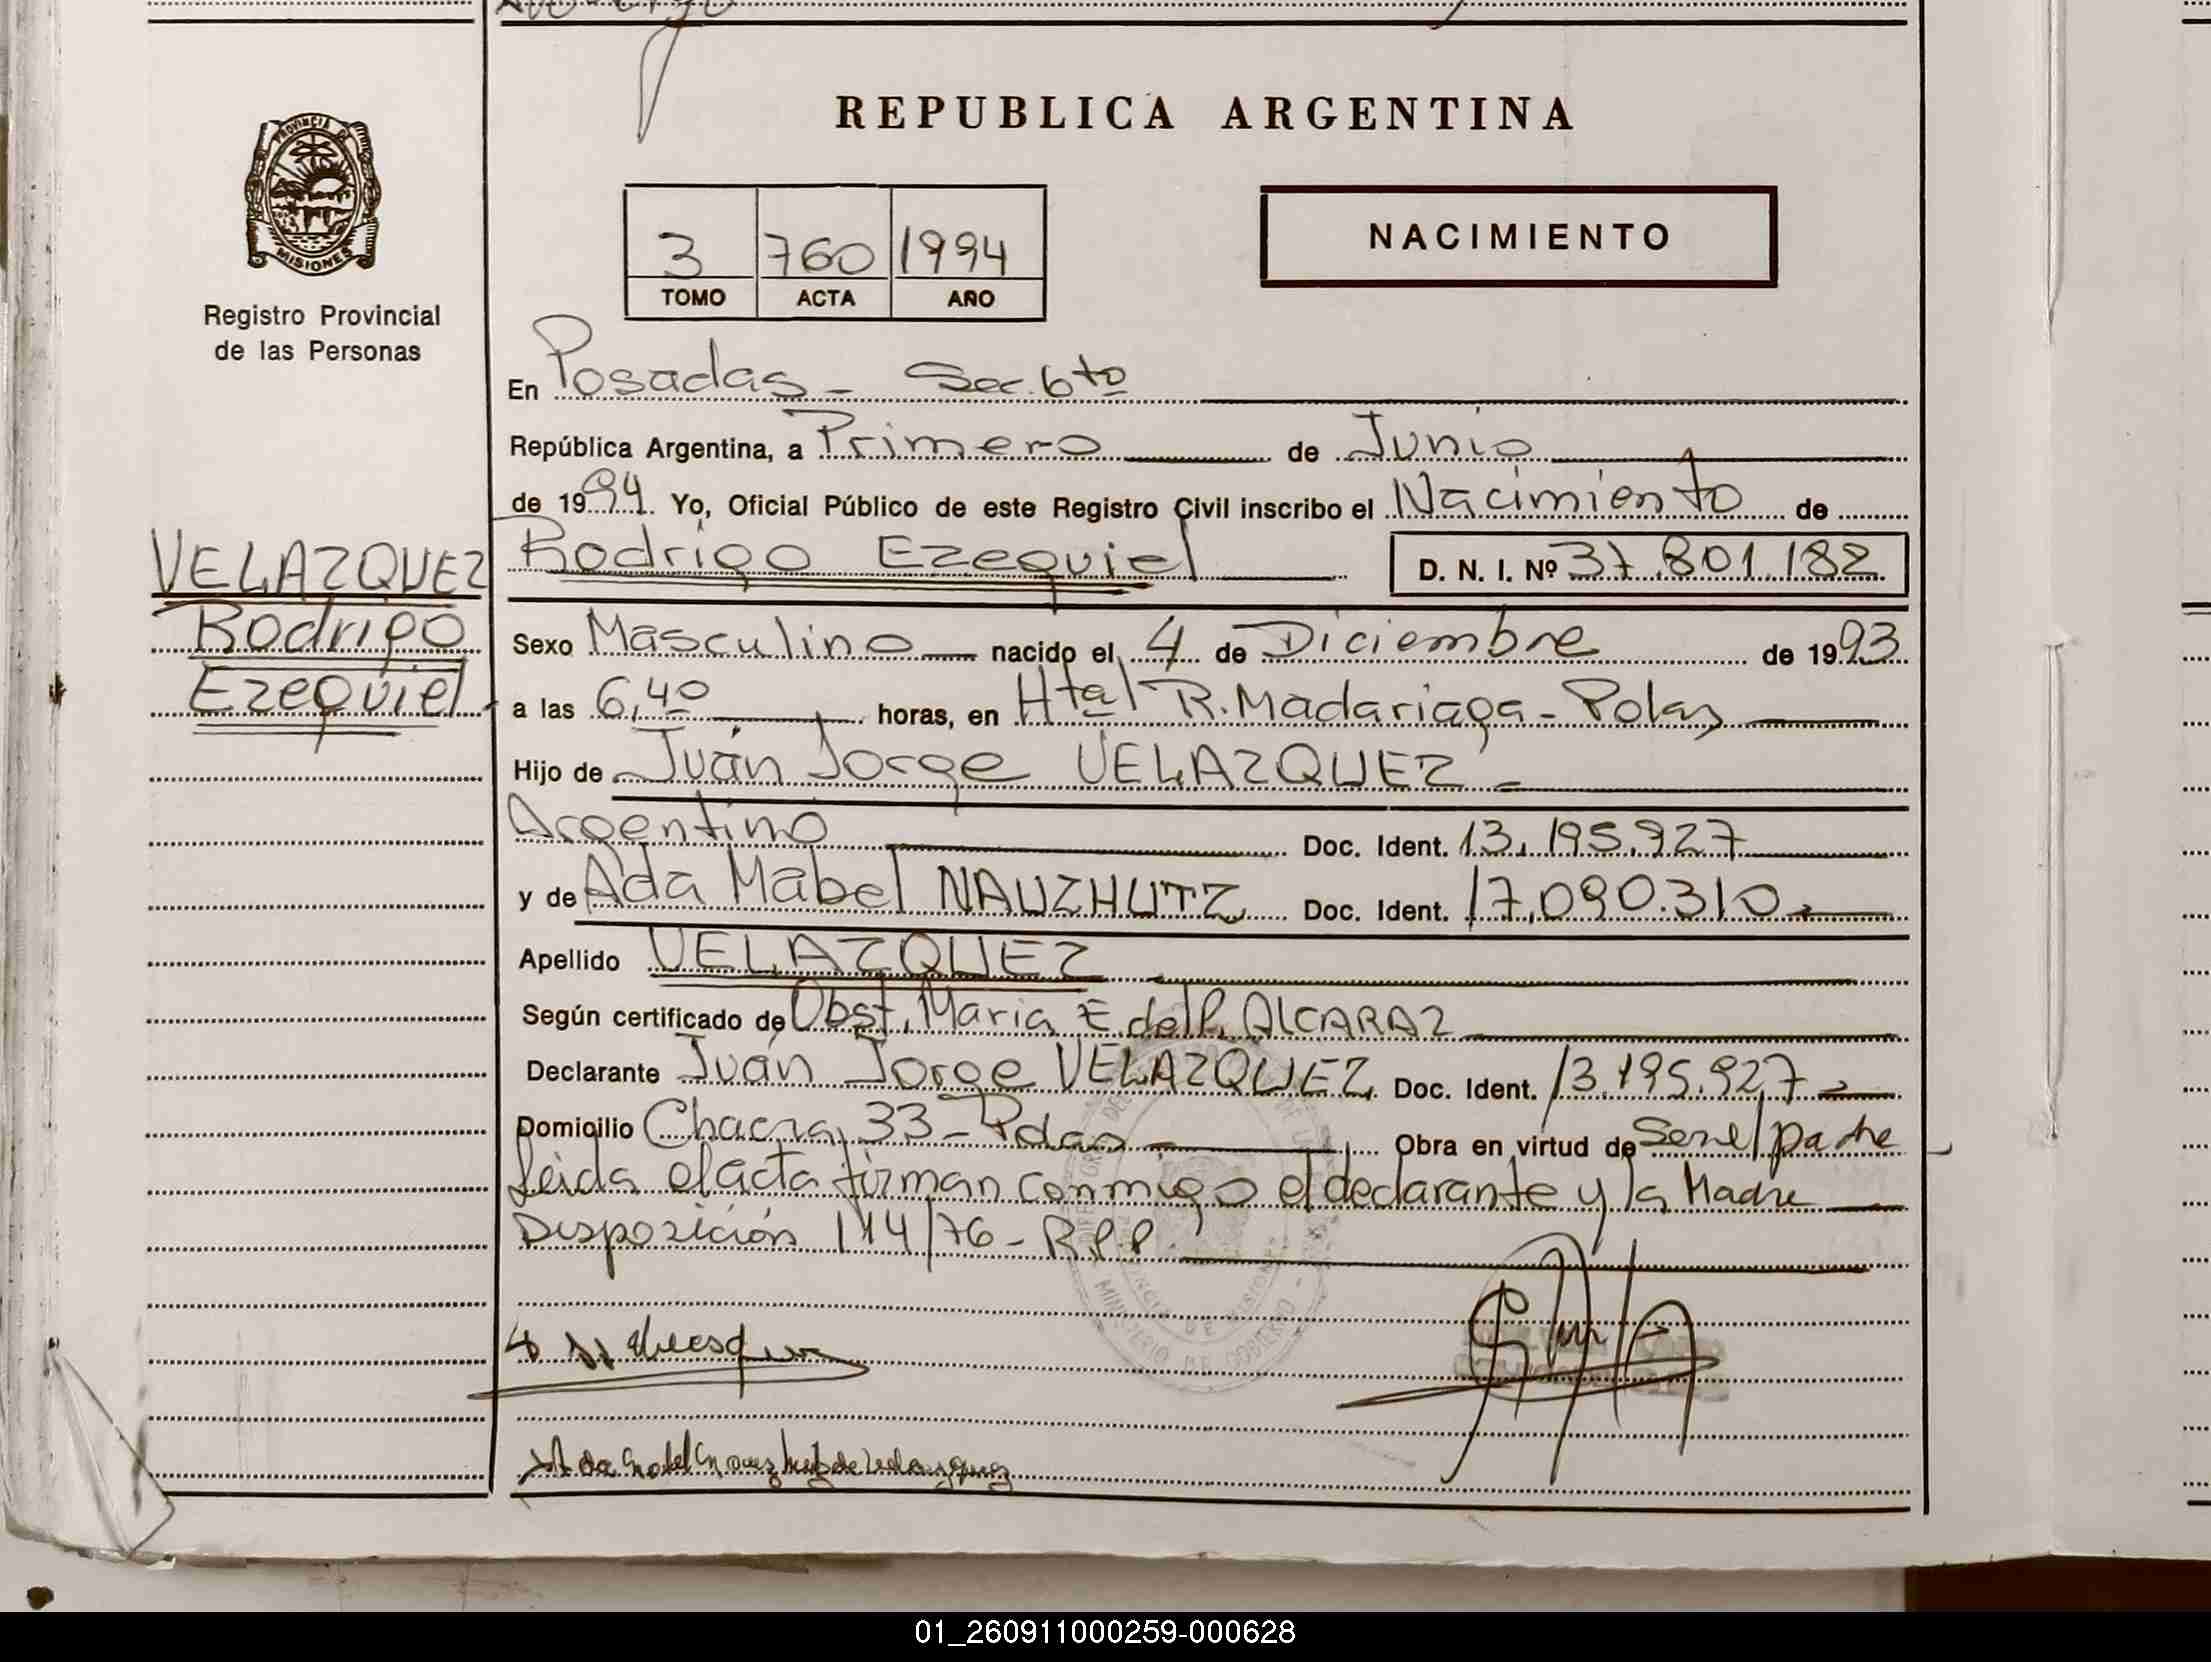 PROVINCIA DE
MISIONES
Registro Provincial
de las Personas
VELAZQUEZ
Rodrigo
Ezequiel
REPUBLICA ARGENTINA
3 760 1994
TOMO ACTA AÑO
NACIMIENTO
En Posadas - Sec. 6to
República Argentina, a Primero de Junio
de 1994 Yo, Oficial Público de este Registro Civil inscribo el Nacimiento de
Rodrigo Ezequiel D. N. I. Nº 37.801.182
Sexo Masculino nacido el 4 de Diciembre de 1993
a las 6,40 horas, en Htal R. Madariaga - Pdas
Hijo de Juan Jorge VELAZQUEZ
Argentino Doc. Ident. 13.195.927
y de Ada Mabel NAUZHUTZ Doc. Ident. 17.090.310
Apellido VELAZQUEZ
Según certificado de Obst. Maria E. del P. ALCARAZ
Declarante Juan Jorge VELAZQUEZ Doc. Ident. 13.195.927
Domicilio Chacra 33 - Pdas Obra en virtud de Ser el padre
Leida el acta firman conmigo el declarante y la Madre
Disposición 114/76 - R.P.P.
MINISTERIO DE GOBIERNO
01_260911000259-000628